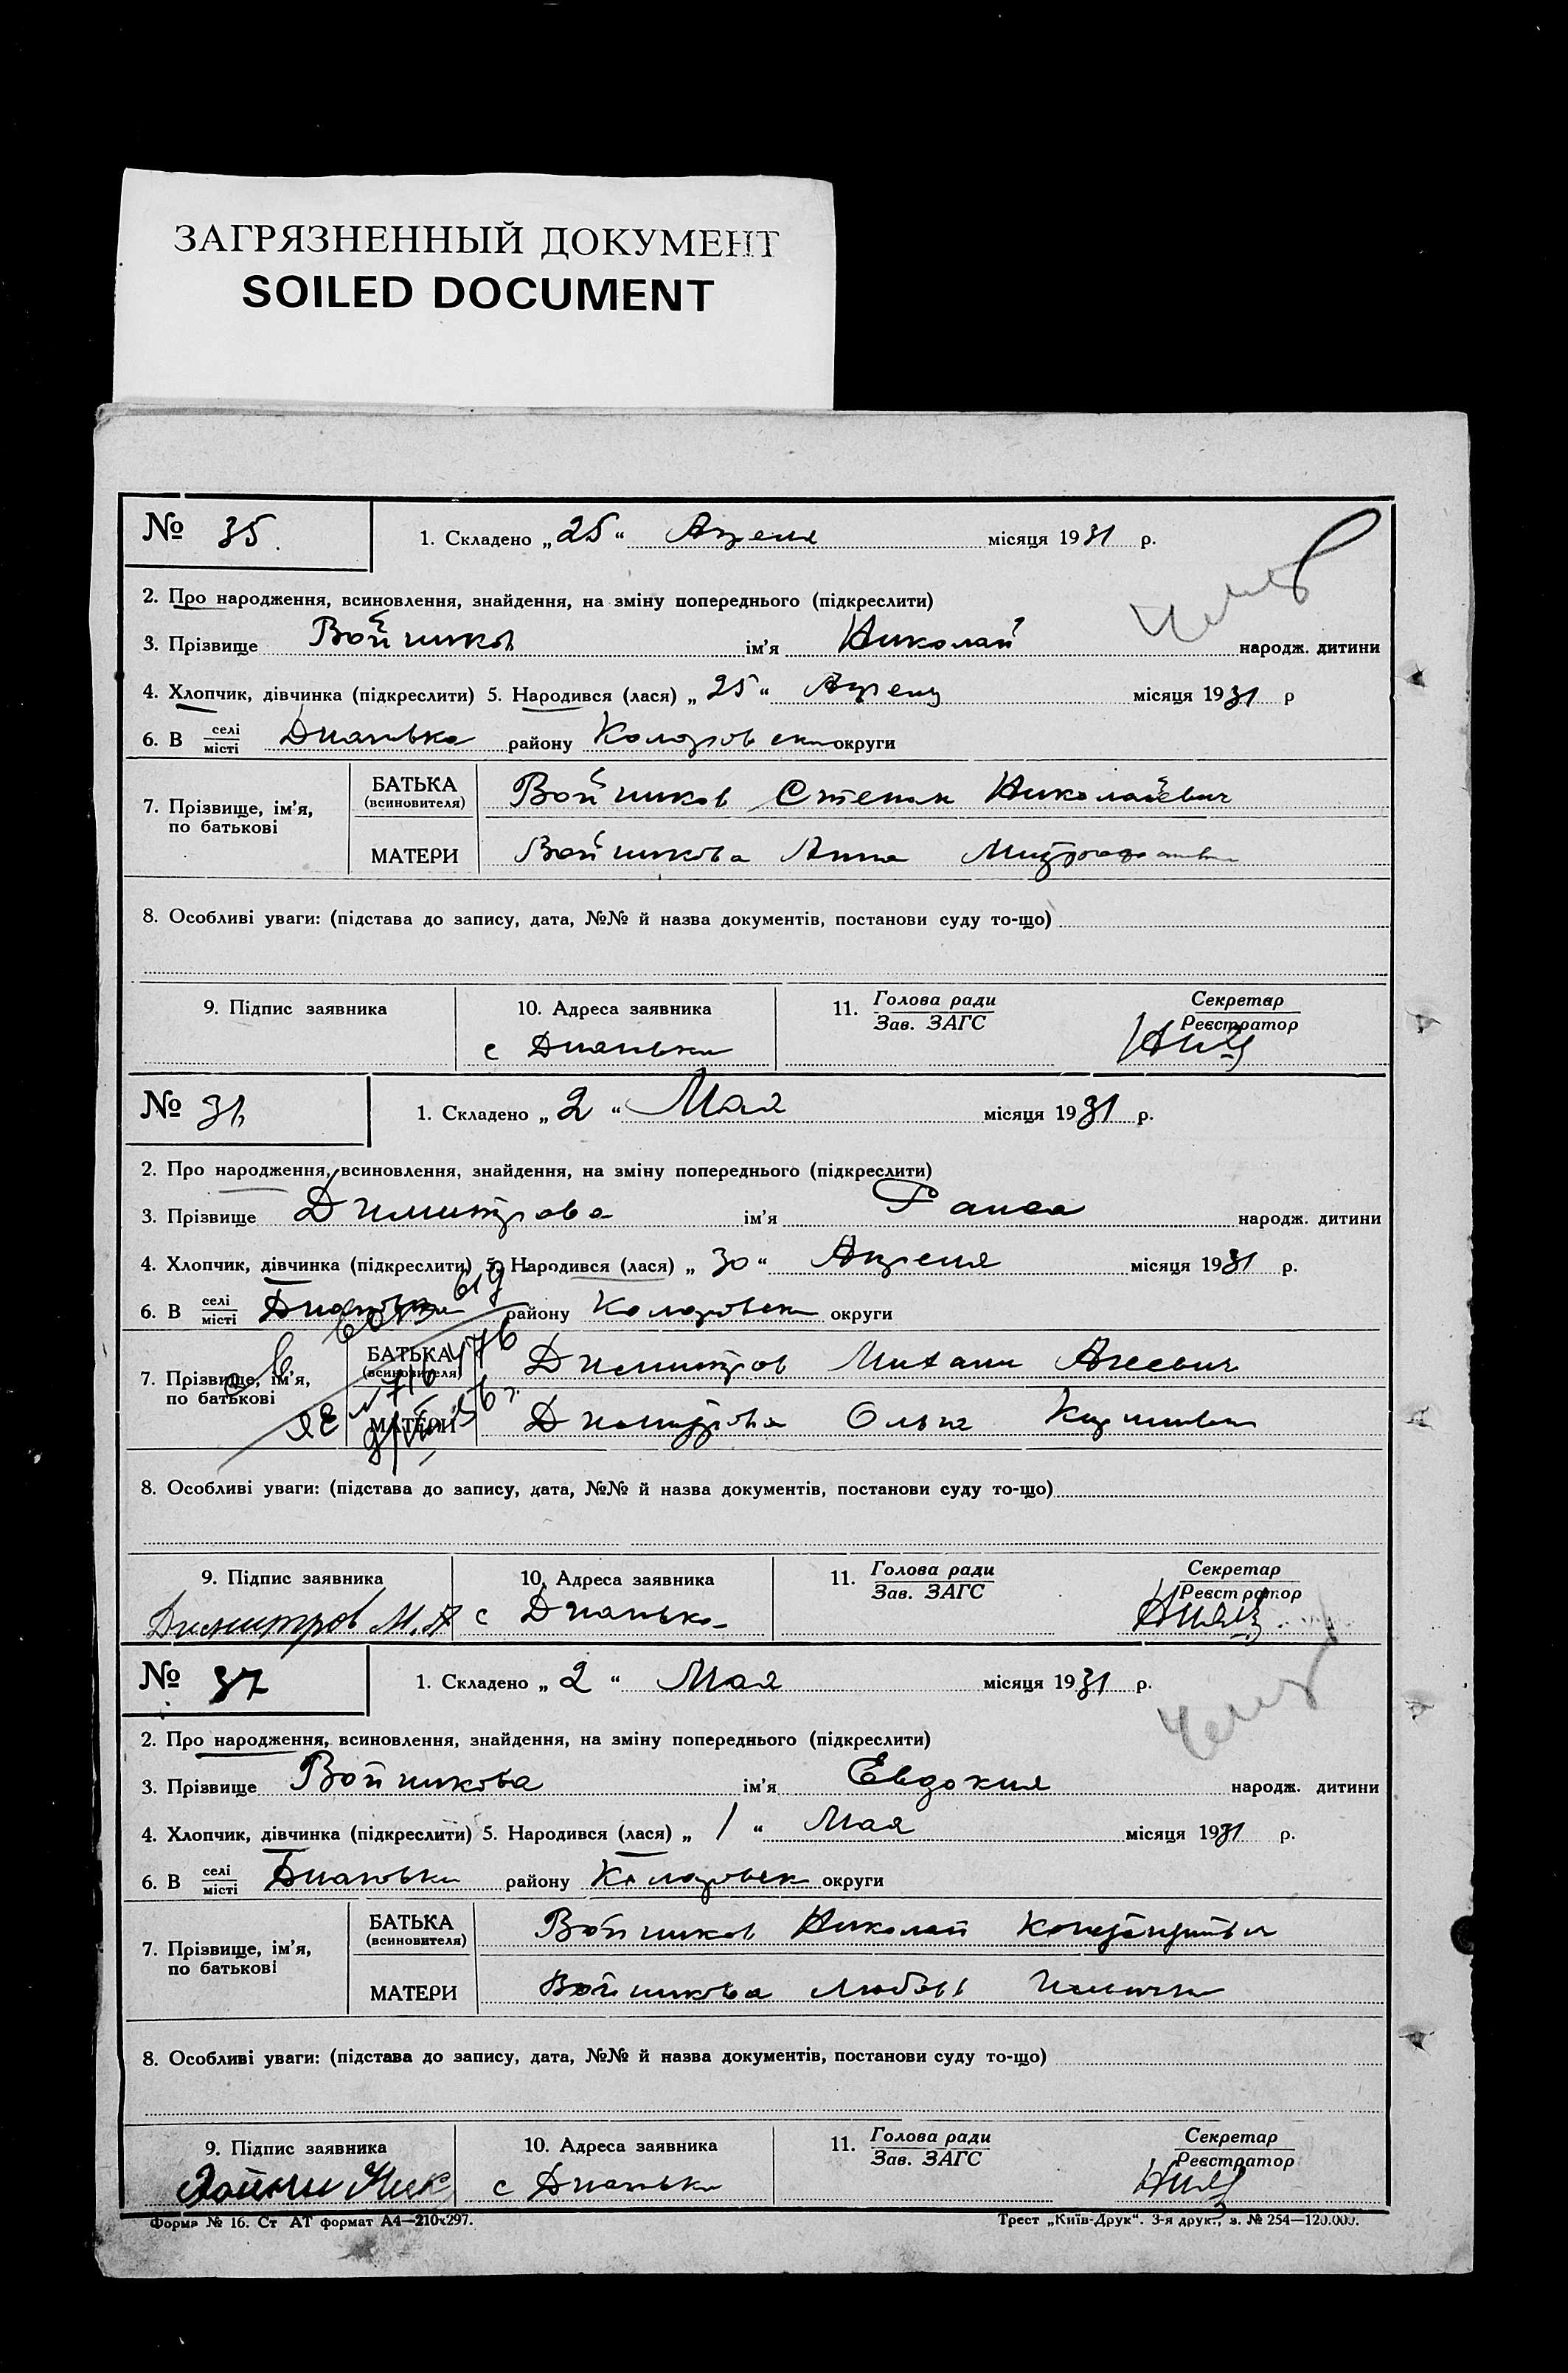 ЗАГРЯЗНЕННЫЙ ДОКУМЕНТ
SOILED DOCUMENT
№ 35. 1. Складено „25“ Апреля місяця 1931 р.
2. Про народження, всиновлення, знайдення, на зміну попереднього (підкреслити)
3. Прізвище Войников ім'я Николай народж. дитини
4. Хлопчик, дівчинка (підкреслити) 5. Народився (лася) „25“ Апреля місяця 1931 р
6. В селі місті Диановка району Коларовски округи
7. Прізвище, ім'я, по батькові
БАТЬКА (всиновителя) Войников Степан Николаевич
МАТЕРИ Войникова Анна
8. Особливі уваги: (підстава до запису, дата, №№ й назва документів, постанови суду то-що)
9. Підпис заявника 10. Адреса заявника 11. Голова ради Зав. ЗАГС Секретар Реєстратор
с Диановки
№ 1. Складено „2“ Мая місяця 1931 р.
2. Про народження, всиновлення, знайдення, на зміну попереднього (підкреслити)
3. Прізвище Димитрова ім'я Раиса народж. дитини
4. Хлопчик, дівчинка (підкреслити) 5. Народився (лася) „30“ Апреля місяця 1931 р.
6. В селі місті Диановки району Коларовски округи
7. Прізвище, ім'я, по батькові
БАТЬКА (всиновителя) Димитров Михаил
МАТЕРИ Димитрова Ольга
8. Особливі уваги: (підстава до запису, дата, №№ й назва документів, постанови суду то-що)
9. Підпис заявника 10. Адреса заявника 11. Голова ради Зав. ЗАГС Секретар Реєстратор
Димитров М. А с Диановка
№ 37 1. Складено „2“ Мая місяця 1931 р.
2. Про народження, всиновлення, знайдення, на зміну попереднього (підкреслити)
3. Прізвище Войникова ім'я Евдокия народж. дитини
4. Хлопчик, дівчинка (підкреслити) 5. Народився (лася) „1“ Мая місяця 1931 р.
6. В селі місті Диановки району Коларовск округи
7. Прізвище, ім'я, по батькові
БАТЬКА (всиновителя) Войников Николай
МАТЕРИ Войникова Любовь
8. Особливі уваги: (підстава до запису, дата, №№ й назва документів, постанови суду то-що)
9. Підпис заявника 10. Адреса заявника 11. Голова ради Зав. ЗАГС Секретар Реєстратор
с Диановки
Форма № 16. Ст АТ формат А4—210х297. Трест „Київ-Друк“. 3-я друк., з. № 254—120.000.